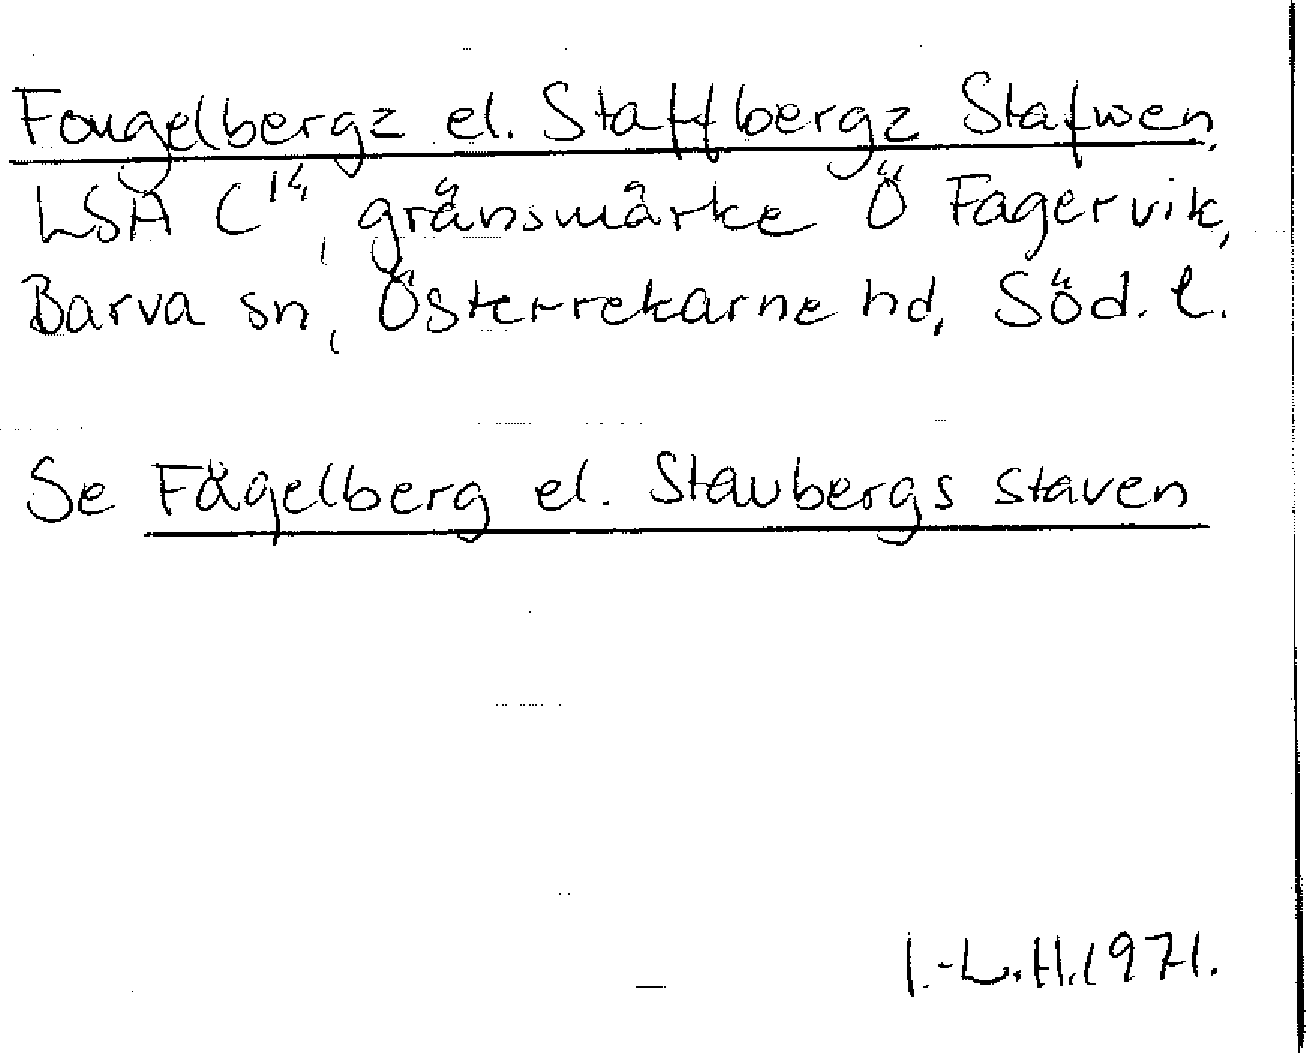 Fougelbergz el. Staffbergz Stafwen,
LSA C 14, gränsmärke Ö Fagervik,
Barva sn, Österrekarne hd, Söd. l.
Se Fågelberg el. Staubergs staven
I.-L.H.1971.